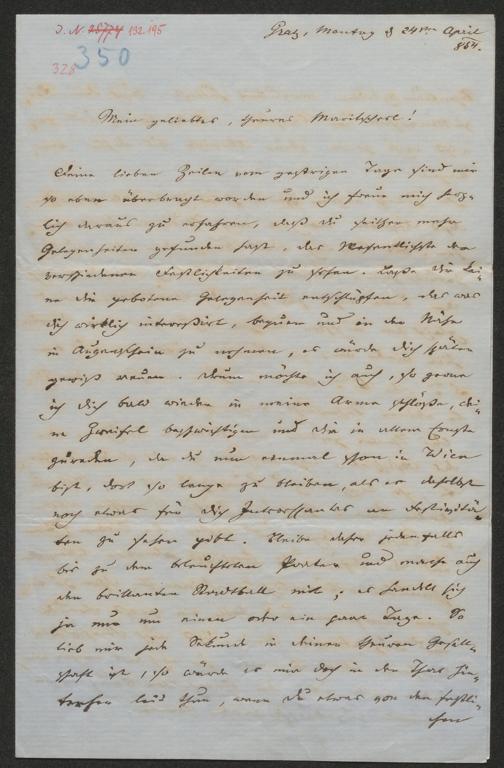 J. N. 25774 132.195
350
328
Graz, Montag d 24ten April
854.
Mein geliebtes, theures Marietscherl!
Deine lieben Zeilen vom gestrigen Tage sind mir
so eben überbracht worden und ich freue mich herz-
lich daraus zu erfahren, daß du seither mehr
Gelegenheiten gefunden hast, das Wesentlichste der
verschiedenen Festlichkeiten zu sehen. Lasse dir kei-
ne die gebotene Gelegenheit entschlüpfen, das was
dich wirklich interessirt, bequem und in der Nähe
in Augenschein zu nehmen, es würde dich später
gewiß reuen. Drum möchte ich auch, so gerne
ich dich bald wieder in meine Arme schlöße, dei-
ne Zweifel beschwichtigen und dir in allem Ernste
zureden, da du nun einmal schon in Wien
bist, dort so lange zu bleiben, als es daselbst
noch etwas für dich Interessantes an Festivitä-
ten zu sehen gibt. Bleibe daher jedenfalls
bis zu dem beleuchteten Prater und mache auch
den brillanten Stadtball mit; es handelt sich
ja nur um einen oder ein paar Tage. So
lieb mir jede Sekunde in deiner theuren Gesell-
schaft ist, so würde es mir doch in der That hin-
terher leid thun, wenn du etwas von den festli-
chen